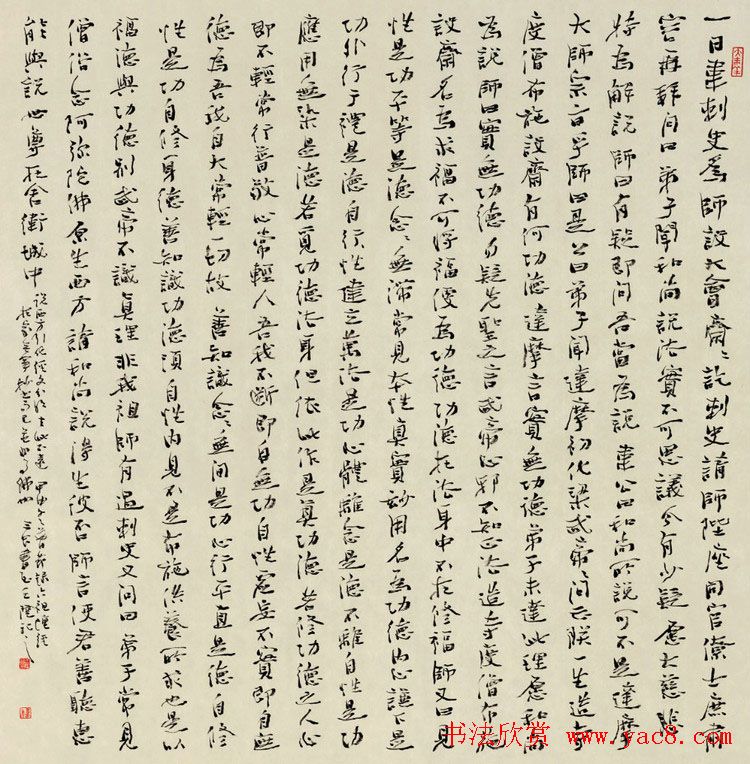 一日韋刺史為師設大會齋〻訖刺史請師陞座同官僚士庶肅
容再拜問曰弟子聞和尚說法實不可思議今有少疑願大慈悲
特為解說師曰有疑即問吾當為說韋公曰和尚所說可不是達摩
大師宗旨乎師曰是公曰弟子聞達摩初化梁武帝〻問云朕一生造寺
度僧布施設齋有何功德達摩言實無功德弟子未達此理願和尚
為說師曰實無功德勿疑先聖之言武帝心邪不知正法造寺度僧布施
設齋名為求福不可將福便為功德功德在法身中不在修福師又曰見
性是功平等是德念〻無滯常見本性真實妙用名為功德內心謙下是
功外行于禮是德自性建立萬法是功心體離念是德不離自性是功
應用無染是德若覓功德法身但依此作是真功德若修功德之人心
即不輕常行普敬心常輕人吾我不斷即自無功自性虛妄不實即自無
德為吾我自大常輕一切故善知識念〻無間是功心行平直是德自修
性是功自修身德善知識功德須自性內見不是布施供養所求也是以
福德與功德別武帝不識真理非我祖師有過刺史又問曰弟子常見
僧俗念阿彌陀佛願生西方請和尚說得生彼否師言使君善聽惠
能與說世尊在舍衛城中
说西方引化經文
书法欣赏
www.yac8.com